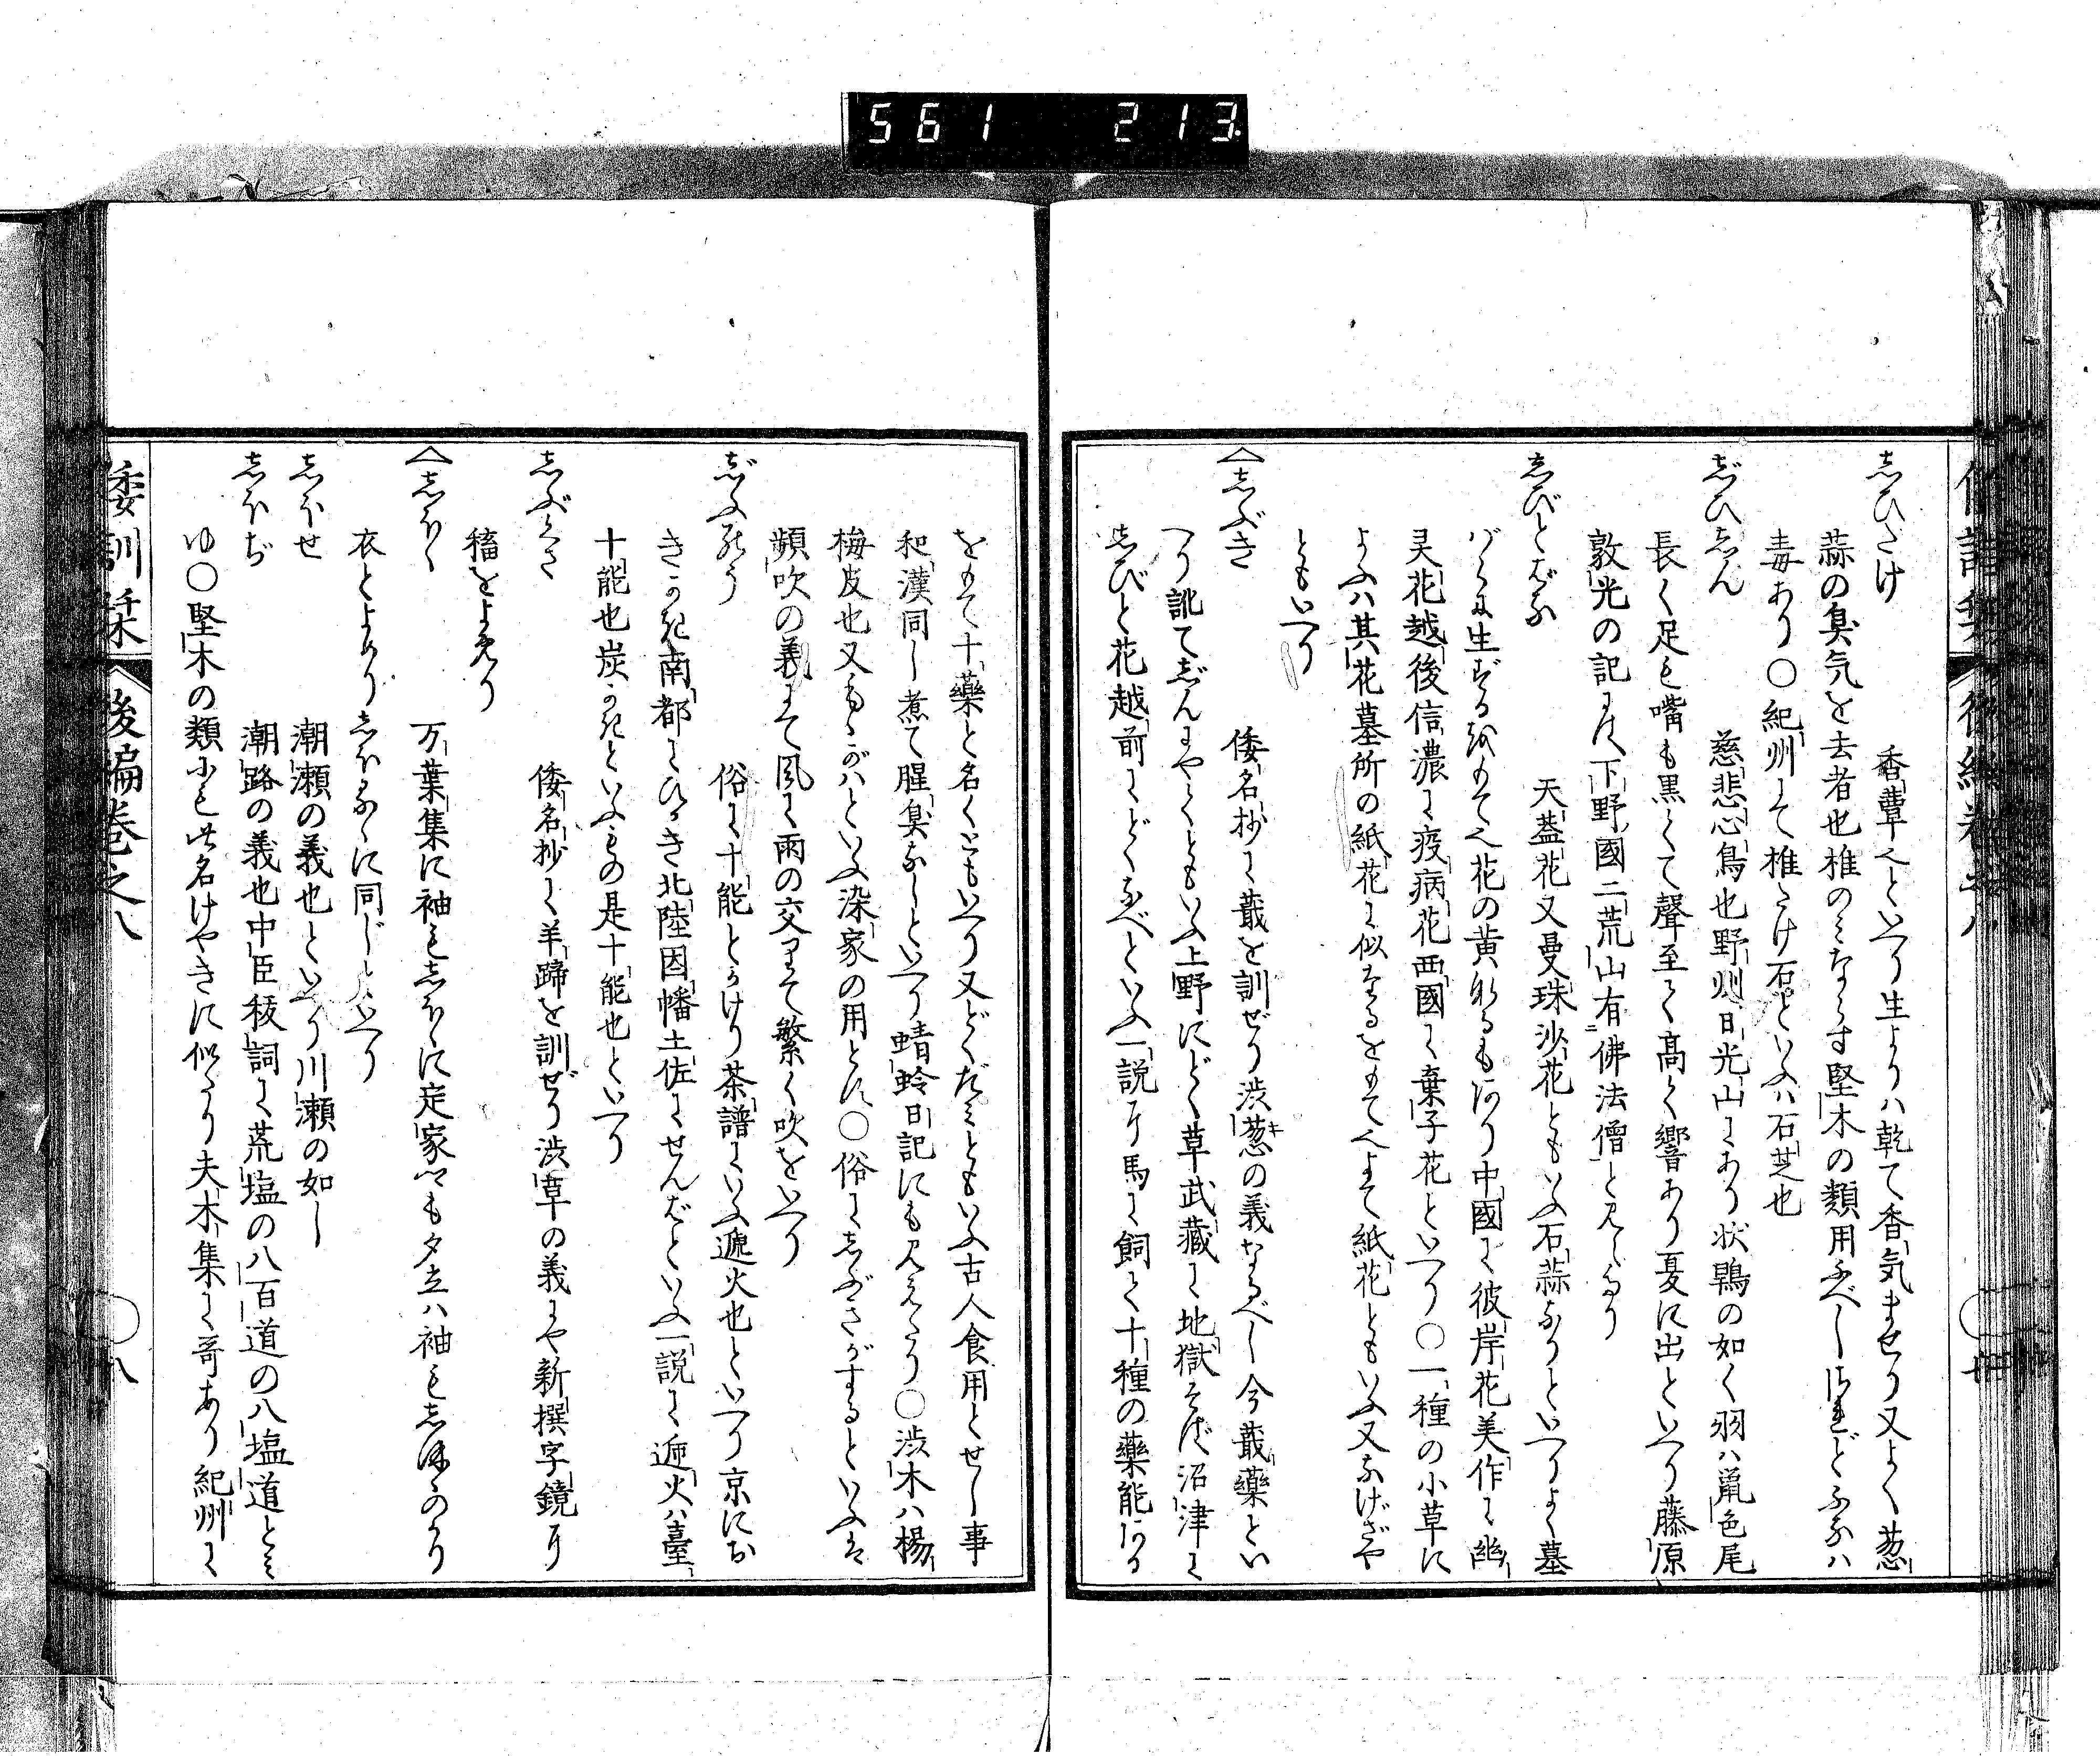 561 213
志ひたけ 香蕈也といへり生よりハ乾て香気ませり又よく葱
蒜の臭気を去者也椎のミならす堅木の類用ふべしされどふなハ
毒あり○紀州にて椎たけ石といふハ石芝也
志゛ひ志ん 慈悲心鳥也野州日光山にあり状鶤の如く羽ハ鼠色尾
長く足も嘴も黒くて聲至て高く響あり夏に出といへり藤原
敦光の記にハ下野國二荒山有佛法僧と見えたり
志びとばな 天蓋花又曼珠沙花ともいふ石蒜なりといへりよく墓
バらに生ずる故もて也花の黄なるもあり中國に彼岸花美作に幽
灵花越後信濃に疫病花西國に棄子花といへり○一種の小草に
よふハ其花墓所の紙花に似たるをもて也よて紙花ともいふ又なげざや
ともいへり
〽志ぶき 倭名抄に蕺を訓ぜり渋葱の義なるべし今蕺藥とい
へり訛て志゛んにやくともいふ上野にどく草武藏に地獄そば沼津に
志びと花越前にどくなべといふ一説に馬に飼て十種の藥能ある
をもて十藥と名くともいへり又どくだミともいふ古人食用とせし事
和漢同し煮て腥臭なしといへり蜻蛉日記にも見えたり○渋木ハ楊
梅皮也又もゝがハといふ染家の用とす○俗に志ぶきがするといふは
頻吹の義にて風に雨の交りて繁く吹をいへり
志゛ふのう 俗に十能とかけり茶譜にいふ遞火也といへり京にお
きかき南都にひかき北陸因幡土佐にせんばといふ一説に遞火ハ臺
十能也炭かきといふもの是十能也といへり
志ぶくさ 倭名抄に羊蹄を訓ぜり渋草の義にや新撰字鏡に
稸をよめり
〽志ほゝ 万葉集に袖も志ほゝに定家卿も夕立ハ袖も志ほゝのかり
衣とよめり志ほるゝに同じといへり
志ほせ 潮瀬の義也といへり川瀬の如し
志ほぢ 潮路の義也中臣祓詞に荒塩の八百道の八塩道とミ
ゆ○堅木の類にも此名けやきに似たり夫木集に哥あり紀州に
倭訓栞 後編巻之八 八